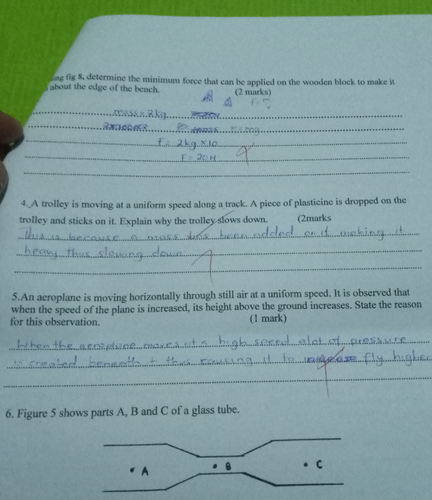 ing fig 8, determine the minimum force that can be applied on the wooden block to make it
about the edge of the bench. (2 marks)
mass = 2kg
F = 2kg x 10
F = 20N
4. A trolley is moving at a uniform speed along a track. A piece of plasticine is dropped on the
trolley and sticks on it. Explain why the trolley slows down. (2marks
This is because a mass has been added and making it
heavy thus slowing down
5.An aeroplane is moving horizontally through still air at a uniform speed. It is observed that
when the speed of the plane is increased, its height above the ground increases. State the reason
for this observation. (1 mark)
When the aeroplane moves at a high speed alot of pressure
is created beneath it thus causing it to fly higher
6. Figure 5 shows parts A, B and C of a glass tube.
A B C